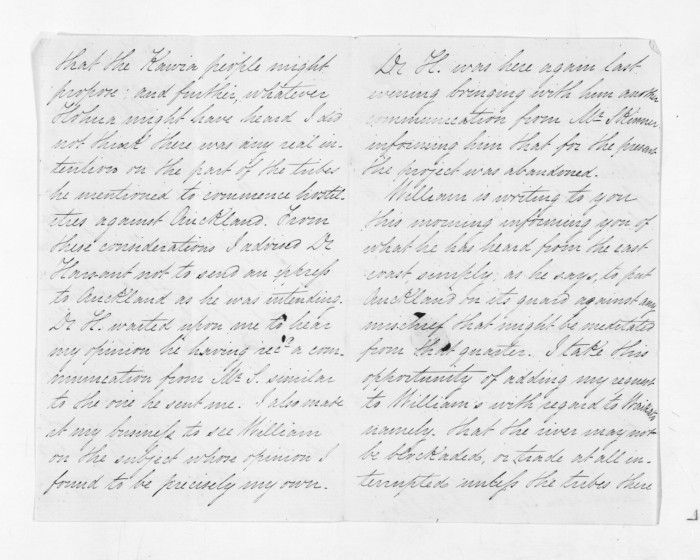 that the Kawia people might
propose: and further, whatever
Hohua might have heard I did
not think there was any real in-
tention on the part of the tribes
he mentioned to commence hostil-
ities against Auckland. From
these considerations I advised Dr
Harsant not to send an express
to Auckland as he was intending.
Dr H. waited upon me to hear
my opinion he having recd a com-
munication from Mr S. similar
to the one he sent me. I also made
it my business to see William
on the subject whose opinion I
found to be precisely my own.
Dr H. was here again last
evening bringing with him another
communication from Mr Skinner
informing him that for the present
the project was abandoned.
William is writing to you
this morning informing you of
what he has heard from the east
coast simply, as he says, to put
Auckland on its guard against any
mischief that might be meditated
from that quarter. I take this
opportunity of adding my request
to William's with regard to Waikato
namely. that the river may not
be blockaded, or trade at all in-
terrupted unless the tribes there